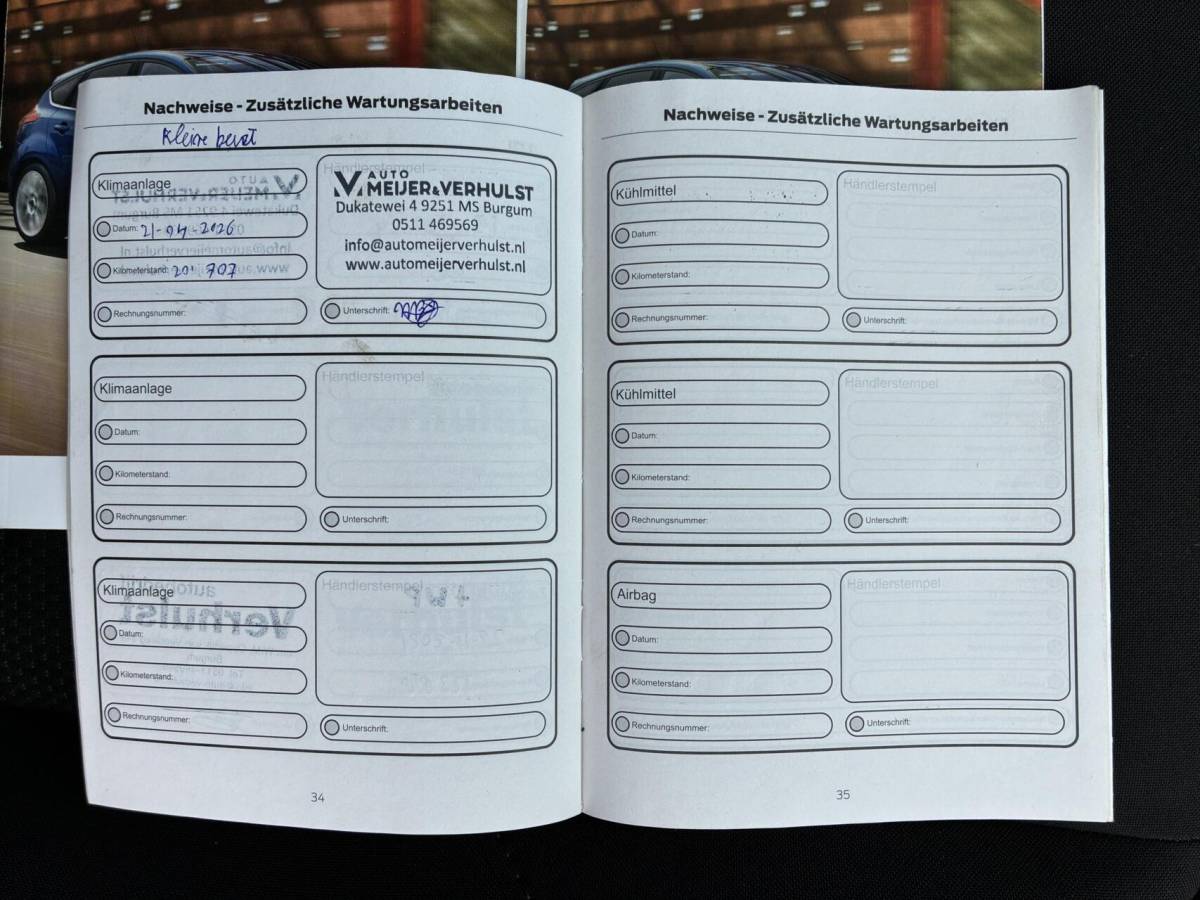 Nachweise - Zusätzliche Wartungsarbeiten
Kleine beurt
Klimaanlage
Datum: 21-04-2026
Kilometerstand: 201 707
Rechnungsnummer:
Händlerstempel
AUTO
MEIJER & VERHULST
Dukatewei 4 9251 MS Burgum
0511 469569
info@automeijerverhulst.nl
www.automeijerverhulst.nl
Unterschrift:
Klimaanlage
Datum:
Kilometerstand:
Rechnungsnummer:
Händlerstempel
Unterschrift:
Klimaanlage
Datum:
Kilometerstand:
Rechnungsnummer:
Händlerstempel
Unterschrift:
34
Nachweise - Zusätzliche Wartungsarbeiten
Kühlmittel
Datum:
Kilometerstand:
Rechnungsnummer:
Händlerstempel
Unterschrift:
Kühlmittel
Datum:
Kilometerstand:
Rechnungsnummer:
Händlerstempel
Unterschrift:
Airbag
Datum:
Kilometerstand:
Rechnungsnummer:
Händlerstempel
Unterschrift:
35